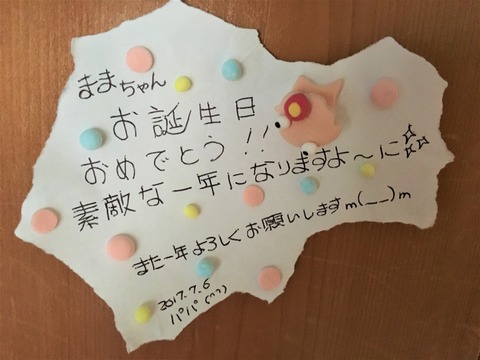 ままちゃん
お誕生日
おめでとう!!
素敵な一年になりますよ～に☆☆
また一年よろしくお願いしますm(__)m
2017.7.6
パパ(^^)